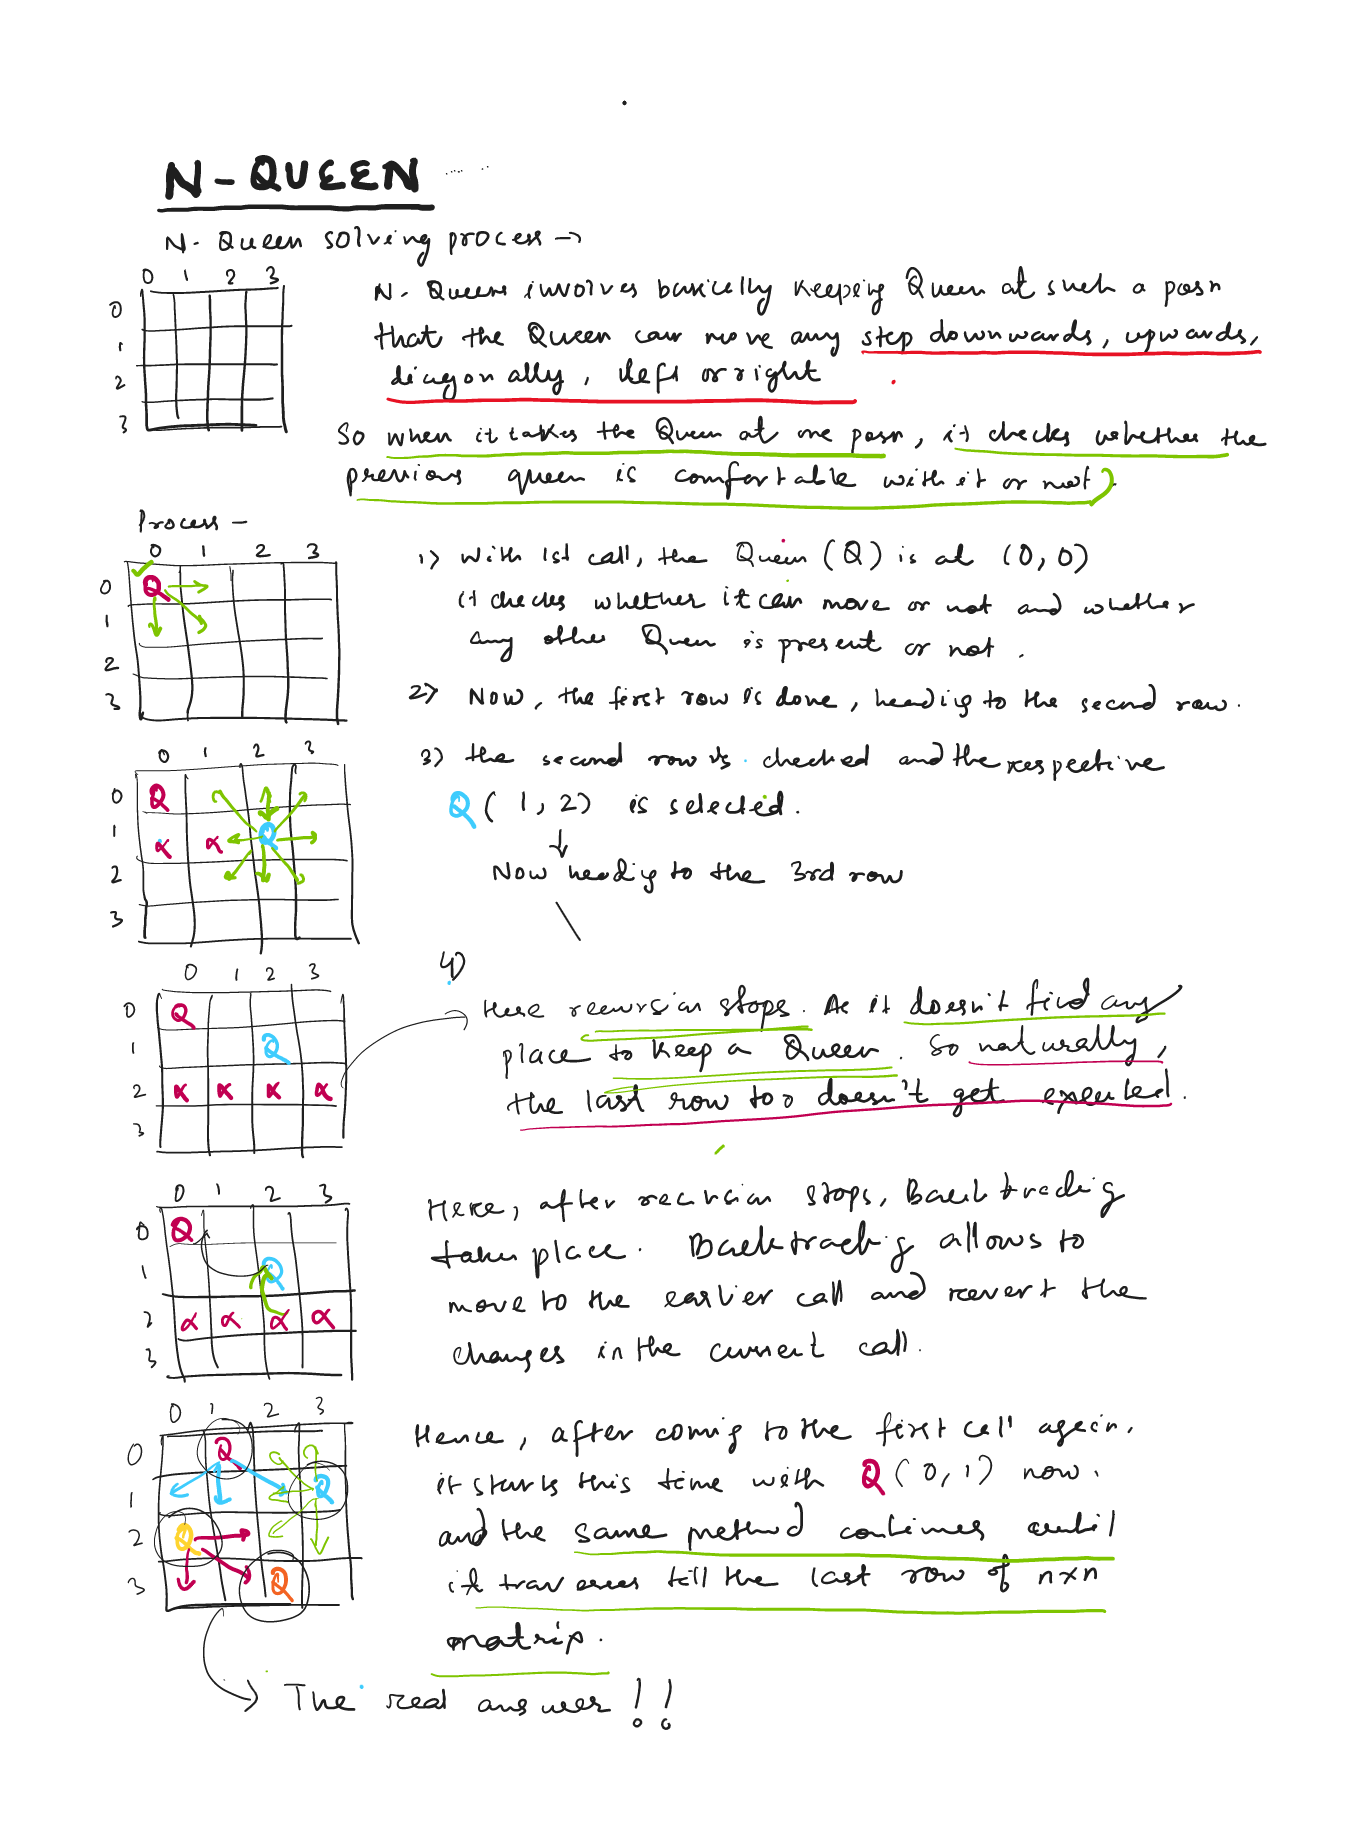 N-QUEEN
N-Queen solving process →
0 1 2 3
0
1
2
3
N-Queens involves basically keeping Queen at such a posn
that the Queen can move any step downwards, upwards,
diagonally, left or right
So when it takes the Queen at one posn, it checks whether the
previous queen is comfortable with it or not.
Process -
0 1 2 3
0 Q
1
2
3
1) With 1st call, the Queen (Q) is at (0,0)
it checks whether it can move or not and whether
any other Queen is present or not.
2) Now, the first row is done, heading to the second row.
0 1 2 3
0 Q
1 x x Q
2
3
3) the second row is checked and the respective
Q (1,2) is selected.
↓
Now heading to the 3rd row
0 1 2 3
0 Q
1 Q
2 x x x x
3
4)
Here recursion stops. As it doesn't find any
place to keep a Queen. So naturally,
the last row too doesn't get executed.
0 1 2 3
0 Q
1 Q
2 x x x x
3
Here, after recursion stops, Backtracking
takes place. Backtracking allows to
move to the earlier call and revert the
changes in the current call.
0 1 2 3
0 Q
1 Q
2 Q
3 Q
Hence, after coming to the first call again,
it starts this time with Q (0,1) now.
and the same method continues until
it traverses till the last row of nxn
matrix.
→ The real answer!!